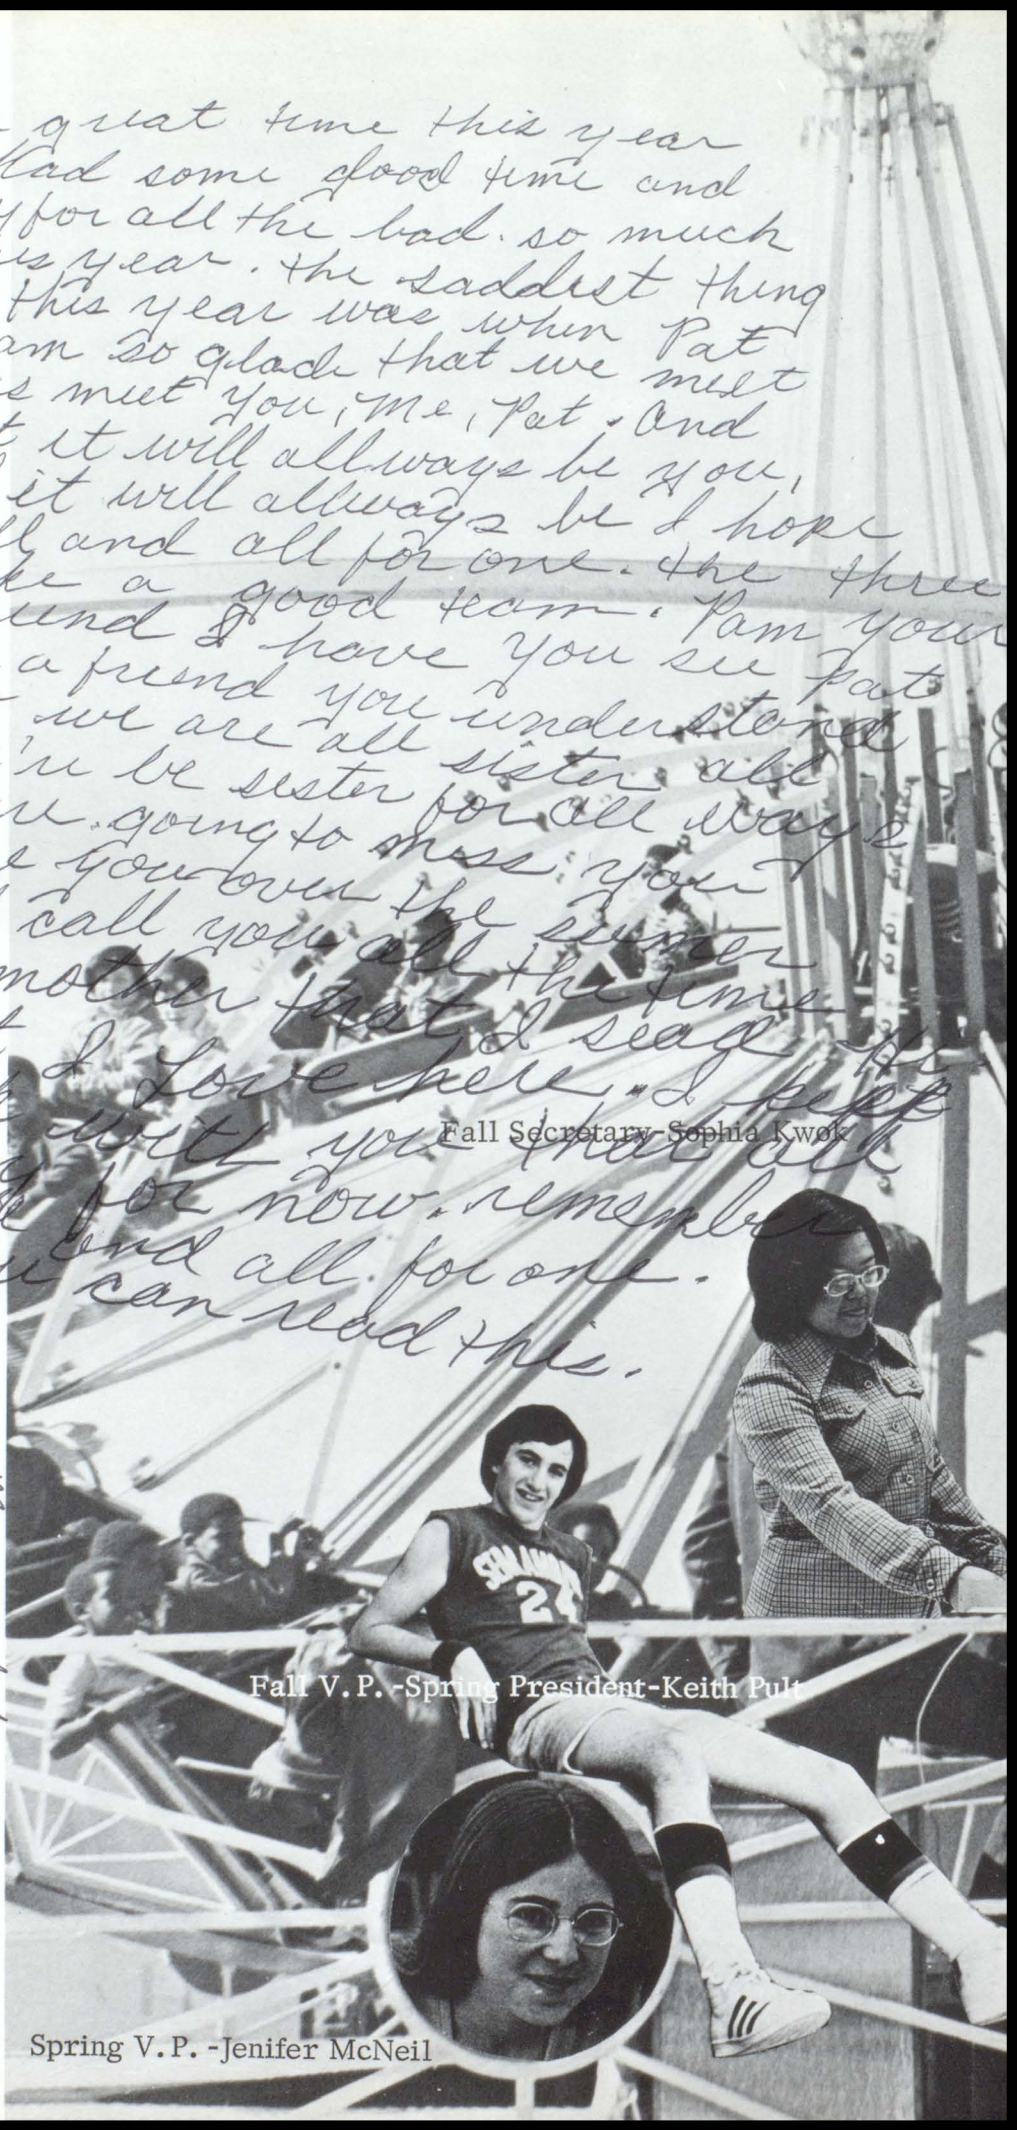 great time this year
Had some good time and
for all the bad. so much
year. the saddest thing
this year was when Pat
am so glad that we meet
meet you, Me, Pat. And
it will allways be you,
it will allways be I hope
and all for one. the three
a good team. Pam your
I have you see Pat
a friend you understand
we are all sister all
be sester for all ways
going to miss you
you over the sumer
call you all the time
mother that I sead Hi
I Love here. I
with you that all
for now. remember
and all for one.
can read this.
Fall Secretary-Sophia Kwok
24
Fall V.P.-Spring President-Keith Pult
Spring V.P.-Jenifer McNeil